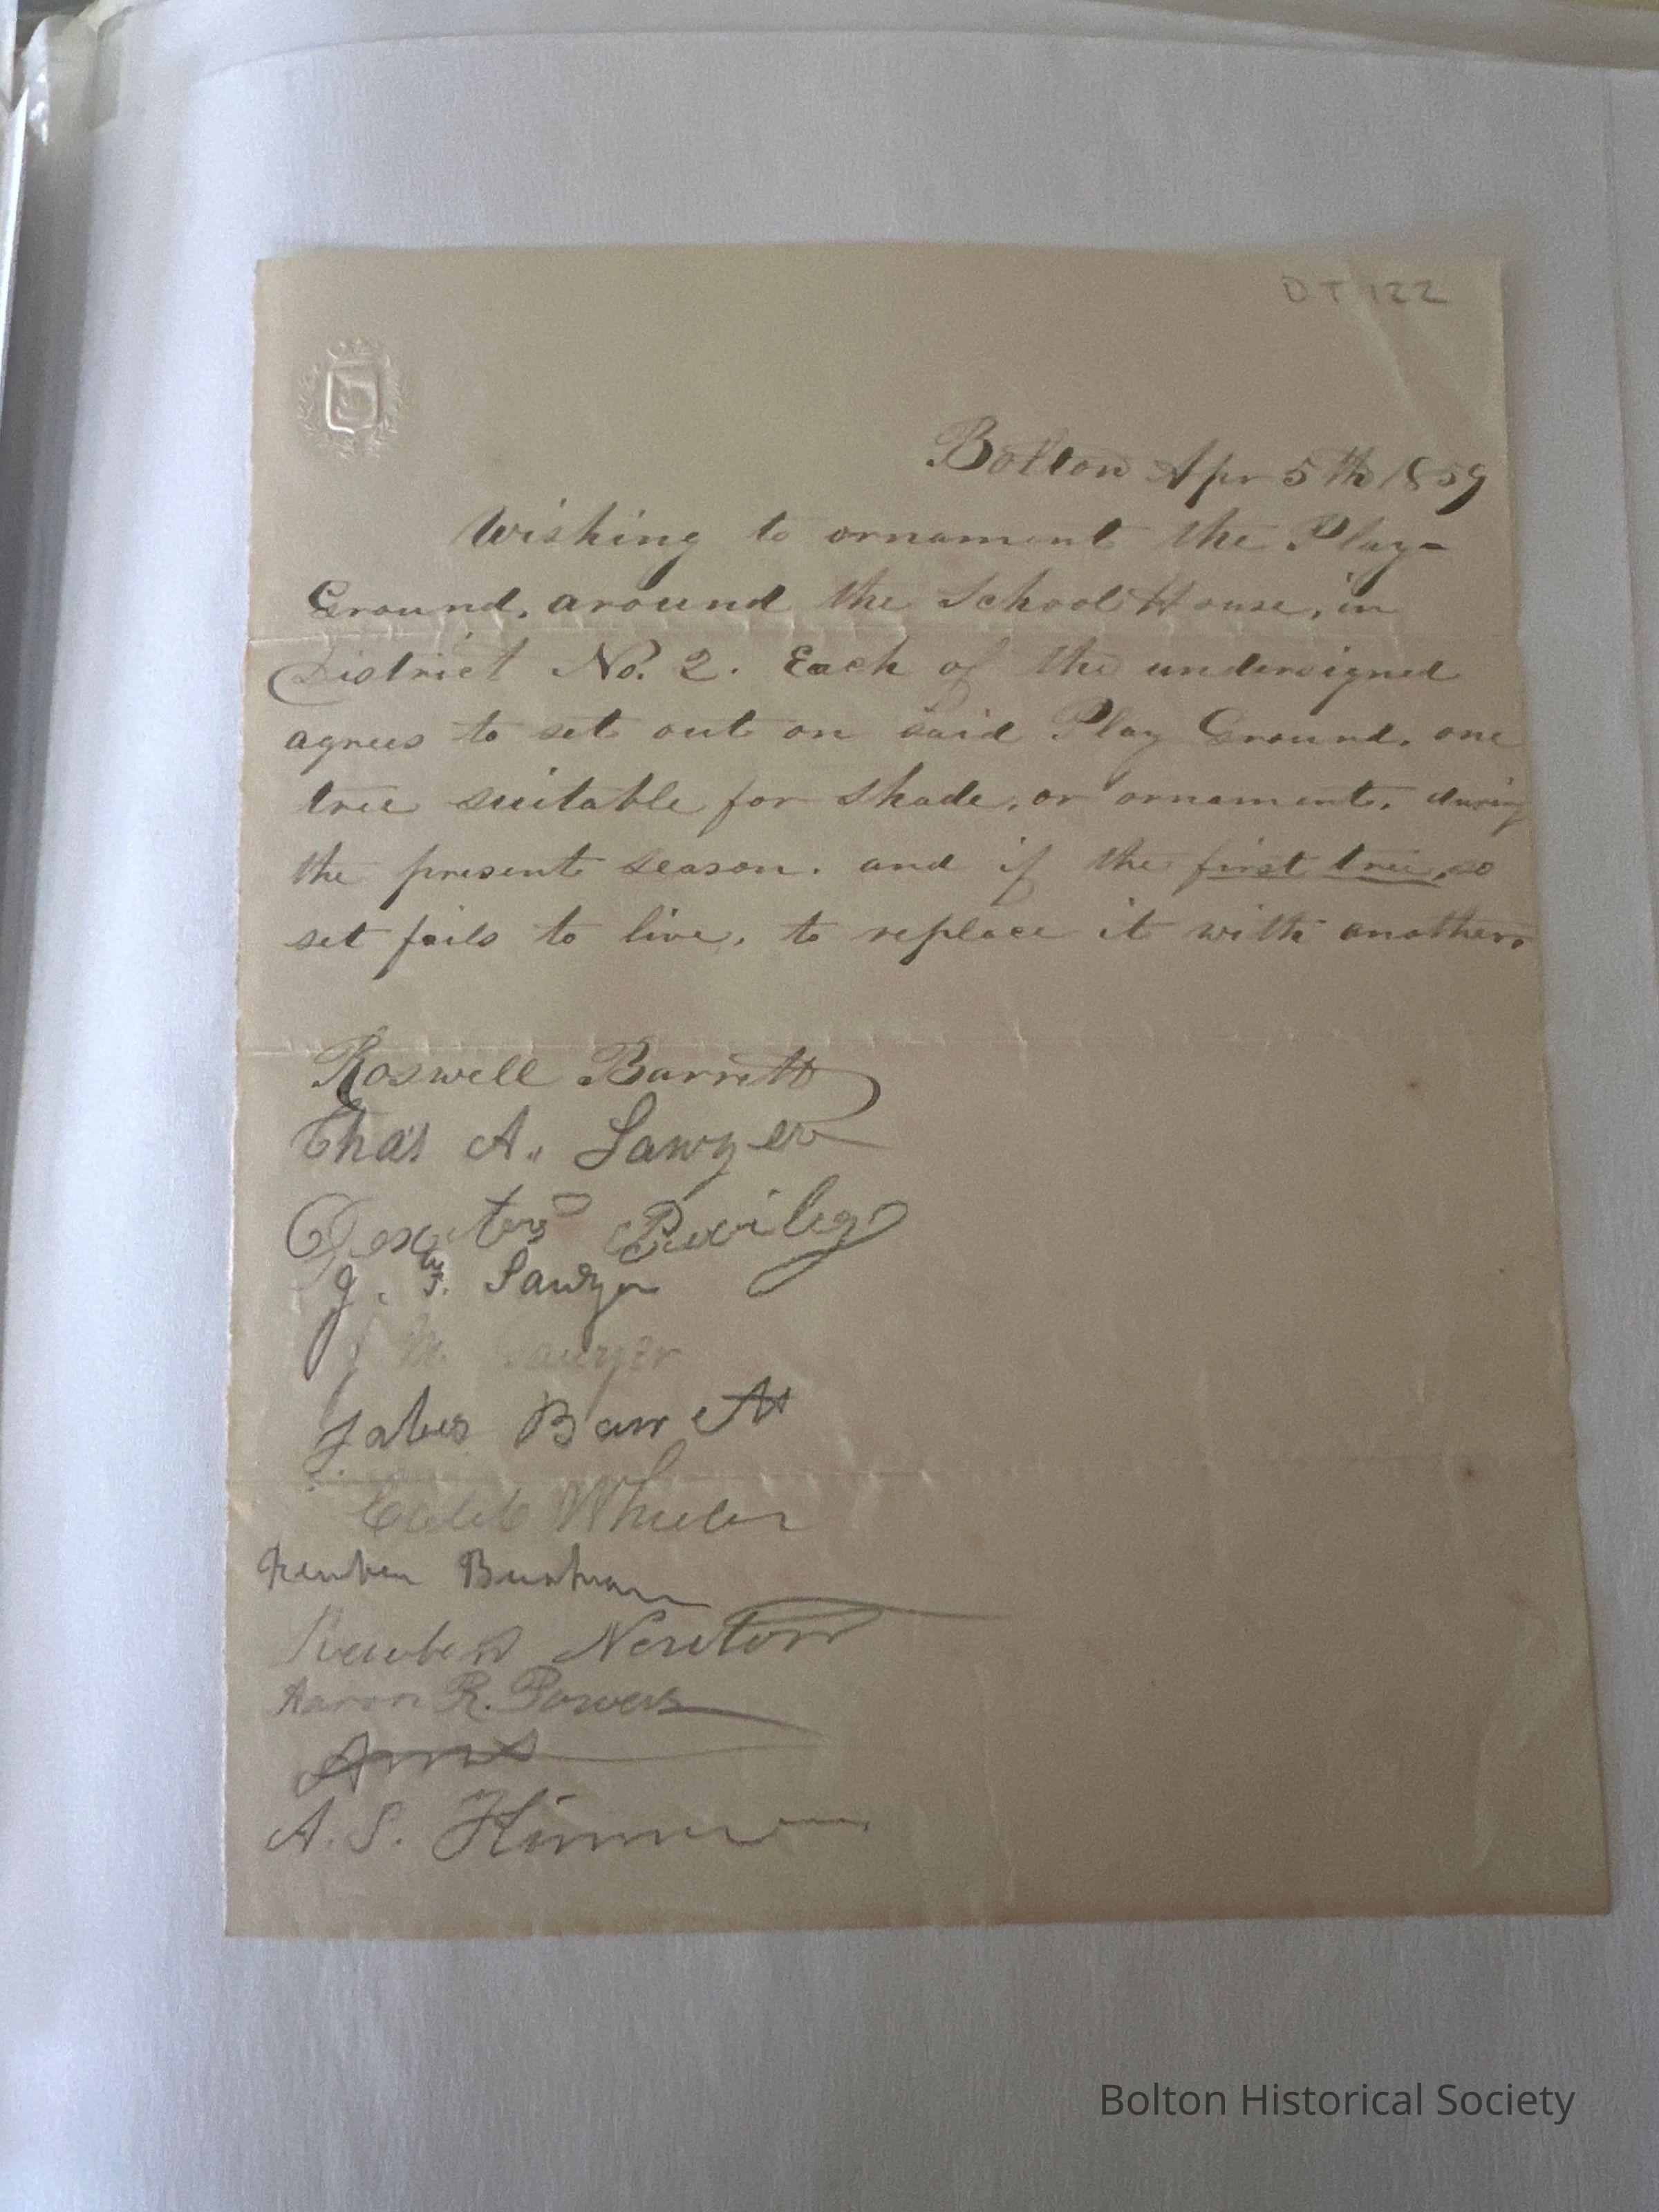 DT 122
Bolton Apr 5th 1859
Wishing to ornament the Play-
Ground, around the School House, in
District No. 2. Each of the undersigned
agrees to set out on said Play Ground, one
tree suitable for shade, or ornament, during
the present season. and if the first tree, so
set fails to live, to replace it with another.
Roswell Barrett
Chas A. Sawyer
J. S. Sawyer
J M. Sawyer
Jabes Barrett
Caleb Wheeler
Reuben
Reuben Newton
Aaron R. Powers
A. S.
Bolton Historical Society